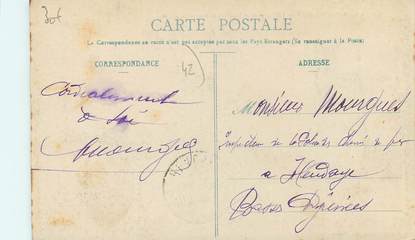 30f
CARTE POSTALE
La Correspondance au recto n'est pas acceptée par tous les Pays Étrangers (Se renseigner à la Poste)
CORRESPONDANCE
42
ADRESSE
Cordialement
à toi
Mourgues
Monsieur Mourgues
Inspecteur de Chemin de fer
a Hendaye
Basses Pyrénées